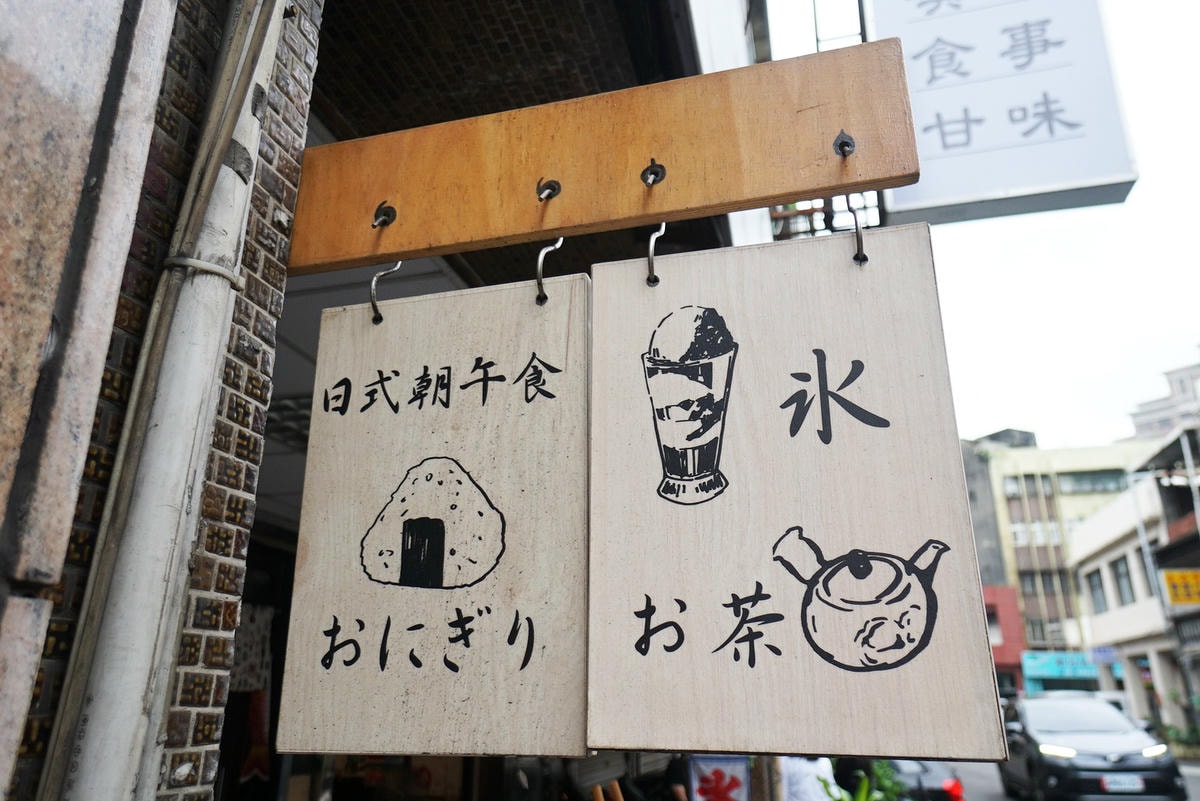 日式朝午食
おにぎり
氷
お茶
食事
甘味